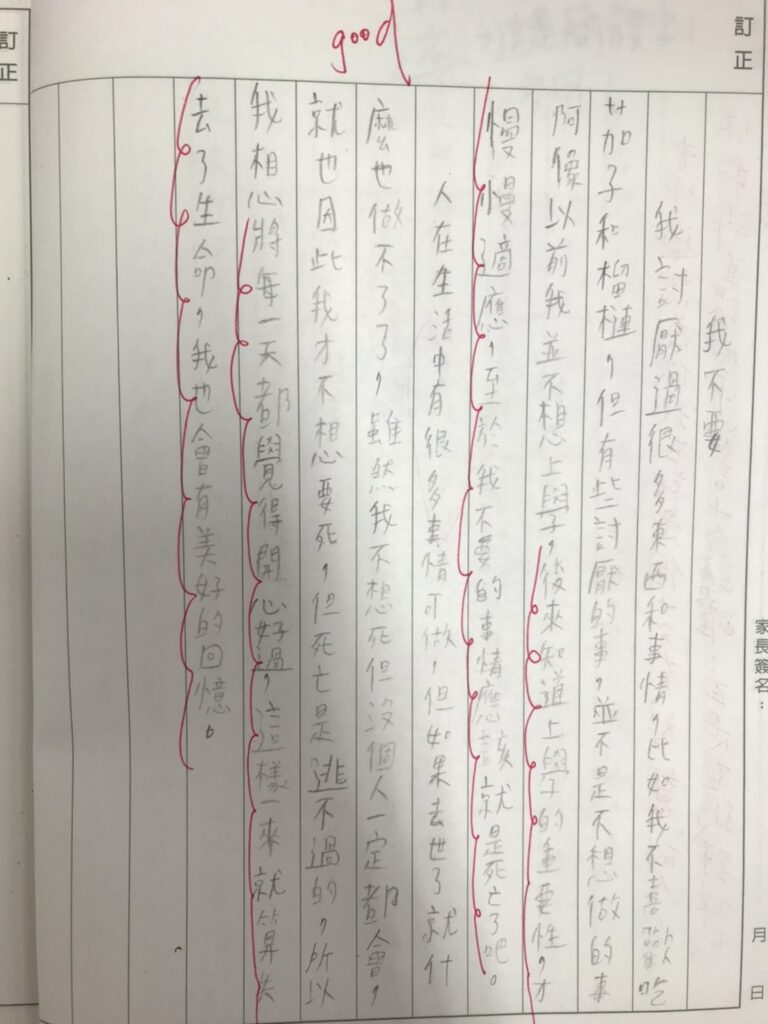 訂正
家長簽名：
月 日
good
我不要
我討厭過很多東西和事情，比如我不喜歡吃
茄子和榴槤，但有些討厭的事，並不是不想做的事
阿像以前我並不想上學，後來知道上學的重要性，才
慢慢適應，至於我不要的事情應該就是死亡了吧。
人在生活中有很多事情可做，但如果去世了就什
麼也做不了了，雖然我不想死但沒個人一定都會，
就也因此我才不想要死，但死亡是逃不過的，所以
我相心將每一天都覺得開心好過，這樣一來就算失
去了生命，我也會有美好的回憶。
訂正